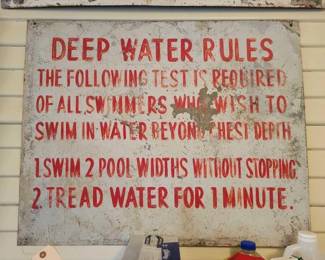 DEEP WATER RULES
THE FOLLOWING TEST IS REQUIRED
OF ALL SWIMMERS WHO WISH TO
SWIM IN WATER BEYOND CHEST DEPTH
1. SWIM 2 POOL WIDTHS WITHOUT STOPPING.
2. TREAD WATER FOR 1 MINUTE.